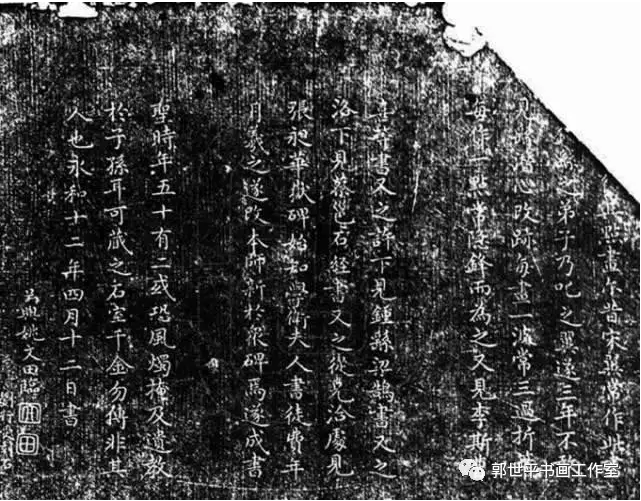 點畫尔昔宋翼常作此
繇之弟子乃叱之翼遂三年不敢
見繇潛心改跡每畫一波常三過折
每作一點常隱鋒而為之又見李斯
喜等書又之許下見鍾繇梁鵠書又之
洛下見蔡邕石經書又之從兄洽處見
張昶華嶽碑始知學衛夫人書徒費年
月羲之遂改本師新於眾碑焉遂成書
聖時年五十有二或恐風燭掩及遺教
於子孫耳可蔵之石室千金勿傳非其
人也永和十二年四月十二日書
吴興姚文田臨
郭世平书画工作室